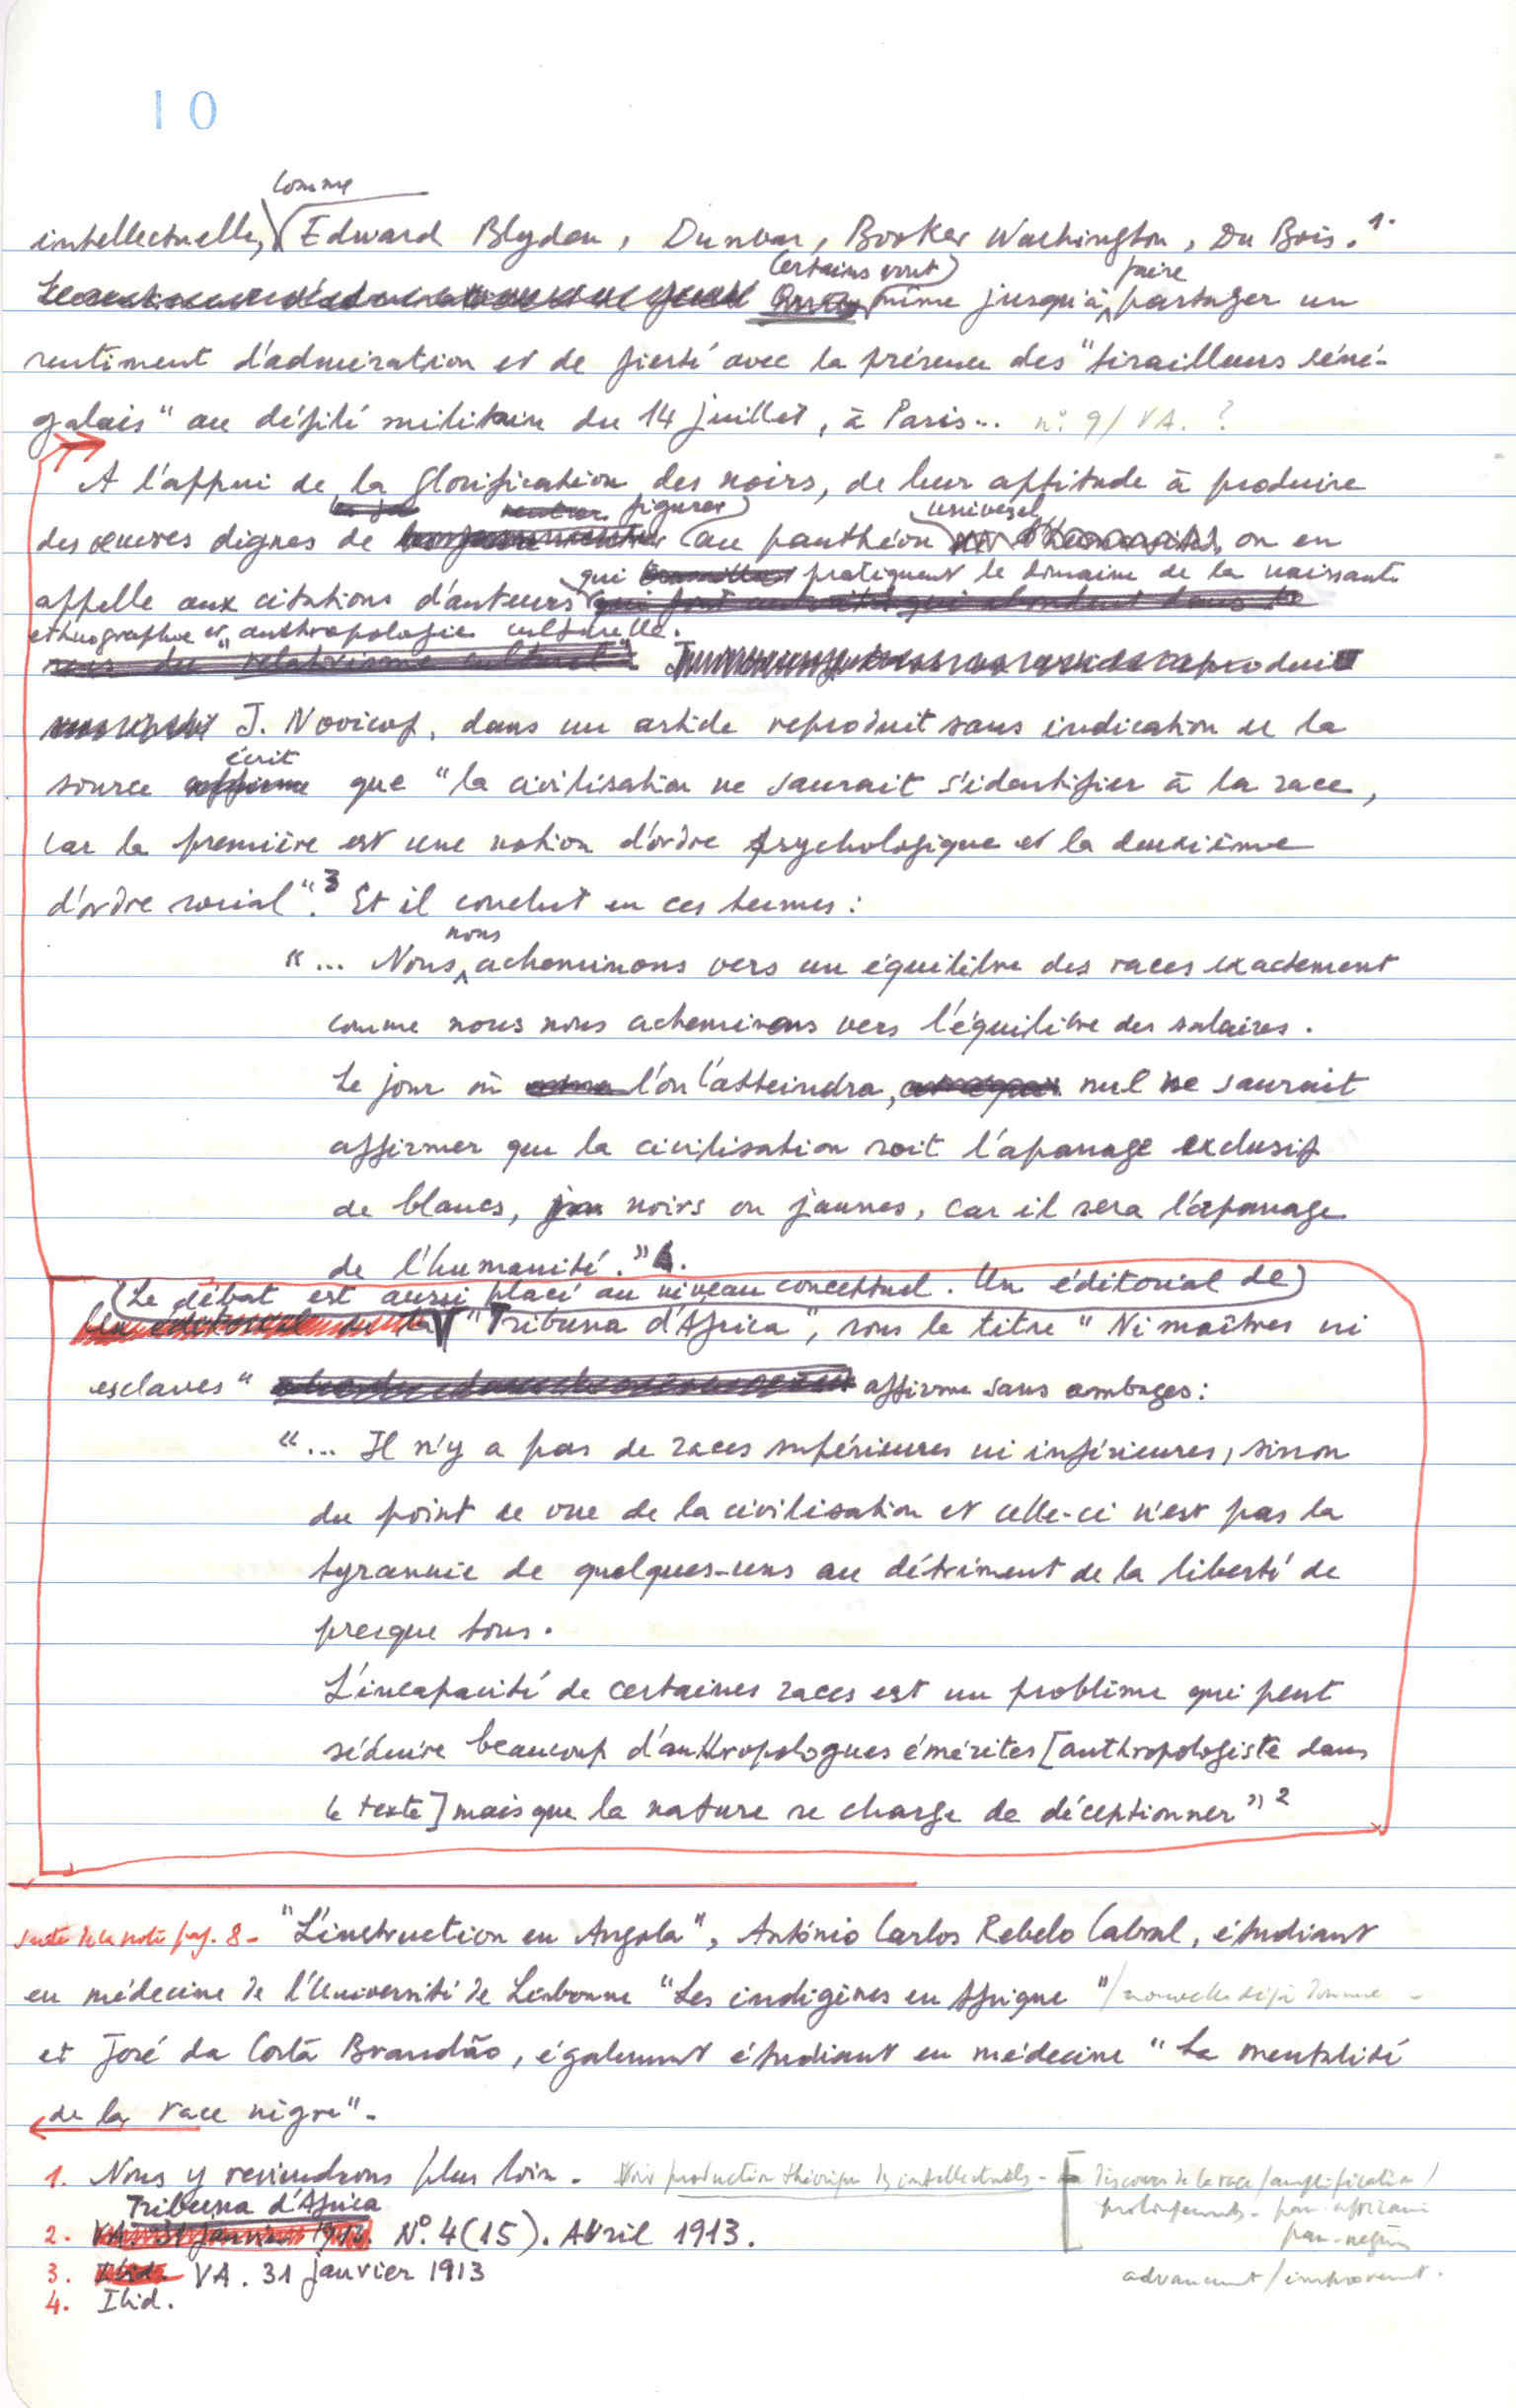 10
comme
intellectuelle, Edward Blyden, Dunbar, Booker Washington, Du Bois.1.
Certains vont faire
même jusqu'à partager un
sentiment d'admiration et de fierté avec la présence des "tirailleurs séné-
galais" au défilé militaire du 14 juillet, à Paris... nº 9/VA. ?
A l'appui de la glorification des noirs, de leur aptitude à produire
figurer universel
des œuvres dignes de au panthéon on en
qui pratiquent le domaine de la naissante
appelle aux citations d'auteurs
ethnographie et anthropologie culturelle.
sens du "relativisme culturel"
J. Novicof, dans un article reproduit sans indication de la
écrit
source affirme que "la civilisation ne saurait s'identifier à la race,
car la première est une notion d'ordre psychologique et la deuxième
d'ordre social".3 Et il conclut en ces termes :
nous
"... Nous acheminons vers un équilibre des races exactement
comme nous nous acheminons vers l'équilibre des salaires.
Le jour où l'on l'atteindra, nul ne saurait
affirmer que la civilisation soit l'apanage exclusif
de blancs, noirs ou jaunes, car il sera l'apanage
de l'humanité."4.
(Le débat est aussi placé au niveau conceptuel. Un éditorial de)
"Tribuna d'Africa", sous le titre "Ni maîtres ni
esclaves" affirme sans ambages :
"... Il n'y a pas de races supérieures ni inférieures, sinon
du point de vue de la civilisation et celle-ci n'est pas la
tyrannie de quelques-uns au détriment de la liberté de
presque tous.
L'incapacité de certaines races est un problème qui peut
séduire beaucoup d'anthropologues émérites [anthropologiste dans
le texte] mais que la nature se charge de déceptionner" 2
suite de la note pag. 8- "L'instruction en Angola", António Carlos Rebelo Cabral, étudiant
en médecine de l'Université de Lisbonne "Les indigènes en Afrique" /nouvelle déjà donnée -
et José da Costa Brandão, également étudiant en médecine "La mentalité
de la race nègre".
1. Nous y reviendrons plus loin. Voir production théorique des intellectuels - Discours de la race/amplification/
prolongements - pan-africain
pan-nègre
Tribuna d'Africa
2. VA. 31 janvier 1913. Nº. 4 (15). Avril 1913.
3. Ibid. VA. 31 janvier 1913
advancement/improvement.
4. Ibid.